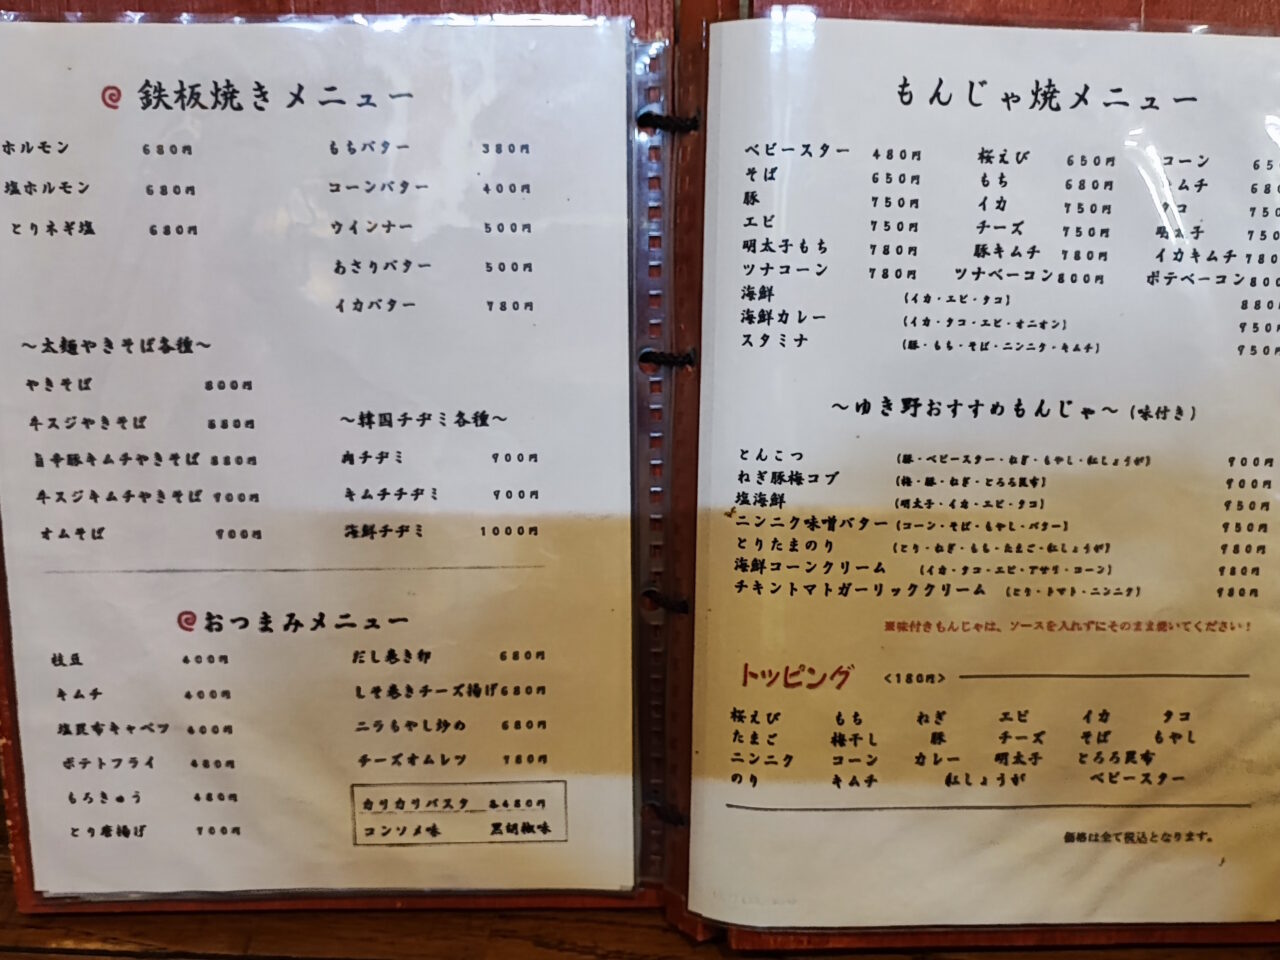 鉄板焼きメニュー
ホルモン 680円 もちバター 380円
塩ホルモン 680円 コーンバター 400円
とりネギ塩 680円 ウインナー 500円
あさりバター 500円
イカバター 780円
～太麺やきそば各種～
やきそば 800円
牛スジやきそば 880円 ～韓国チヂミ各種～
旨辛豚キムチやきそば 880円 肉チヂミ 900円
牛スジキムチやきそば 900円 キムチチヂミ 900円
オムそば 900円 海鮮チヂミ 1000円
おつまみメニュー
枝豆 400円 だし巻き卵 680円
キムチ 400円 しそ巻きチーズ揚げ 680円
塩昆布キャベツ 400円 ニラもやし炒め 680円
ポテトフライ 480円 チーズオムレツ 780円
もろきゅう 480円 カリカリパスタ 各480円
とり唐揚げ 700円 コンソメ味 黒胡椒味
もんじゃ焼メニュー
ベビースター 480円 桜えび 650円 コーン 650
そば 650円 もち 680円 キムチ 680
豚 750円 イカ 750円 タコ 750
エビ 750円 チーズ 750円 明太子 750
明太子もち 780円 豚キムチ 780円 イカキムチ 780
ツナコーン 780円 ツナベーコン 800円 ポテベーコン 800
海鮮 (イカ・エビ・タコ) 880
海鮮カレー (イカ・タコ・エビ・オニオン) 950円
スタミナ (豚・もち・そば・ニンニク・キムチ) 950円
～ゆき野おすすめもんじゃ～(味付き)
とんこつ (豚・ベビースター・ねぎ・もやし・紅しょうが) 900円
ねぎ豚梅コブ (梅・豚・ねぎ・とろろ昆布) 900円
塩海鮮 (明太子・イカ・エビ・タコ) 950円
ニンニク味噌バター (コーン・そば・もやし・バター) 950円
とりたまのり (とり・ねぎ・もち・たまご・紅しょうが) 980円
海鮮コーンクリーム (イカ・タコ・エビ・アサリ・コーン) 980円
チキントマトガーリッククリーム (とり・トマト・ニンニク) 980円
※味付きもんじゃは、ソースを入れずにそのまま焼いてください！
トッピング <180円>
桜えび もち ねぎ エビ イカ タコ
たまご 梅干し 豚 チーズ そば もやし
ニンニク コーン カレー 明太子 とろろ昆布
のり キムチ 紅しょうが ベビースター
価格は全て税込となります。